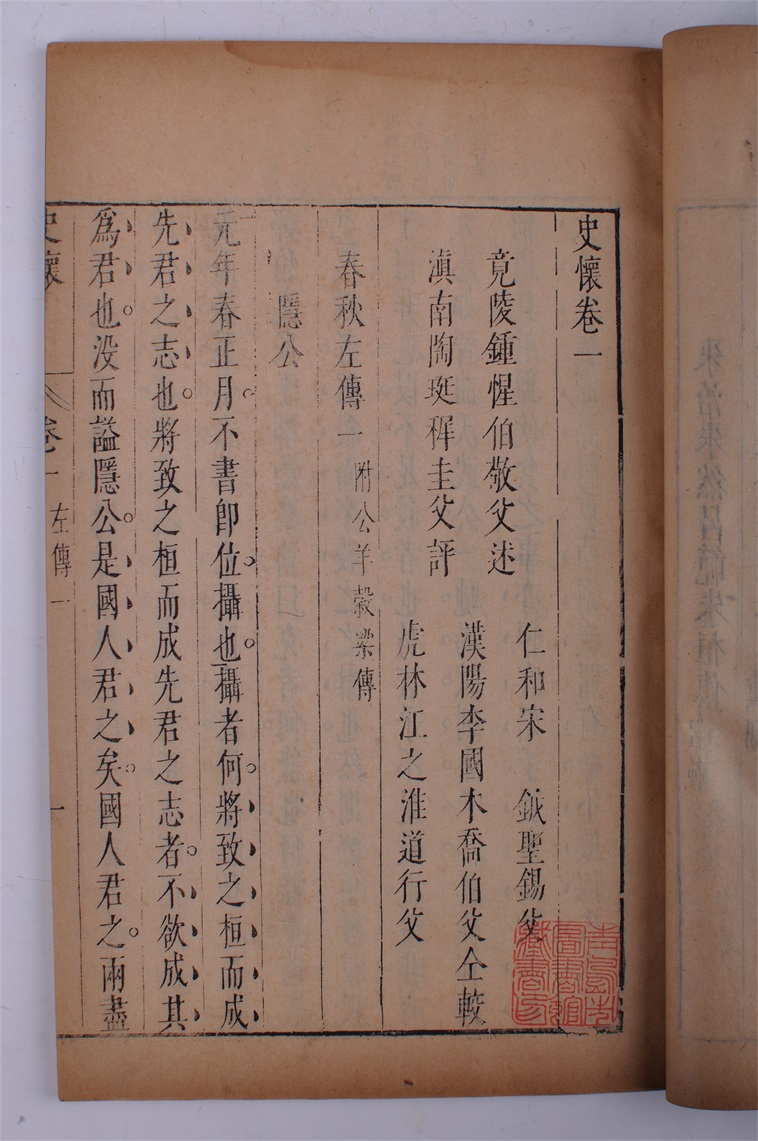 史懷卷一
竟陵鍾惺伯敬父述
滇南陶珽穉圭父評
仁和宋 鉞聖錫父
漢陽李國木喬伯父仝較
虎林江之淮道行父
春秋左傳一附公羊穀梁傳
隱公
元年春正月不書卽位攝也攝者何將致之桓而成
先君之志也將致之桓而成先君之志者不欲成其
爲君也没而謚隱公是國人君之矣國人君之兩盡
史懷
卷一
左傳一
一